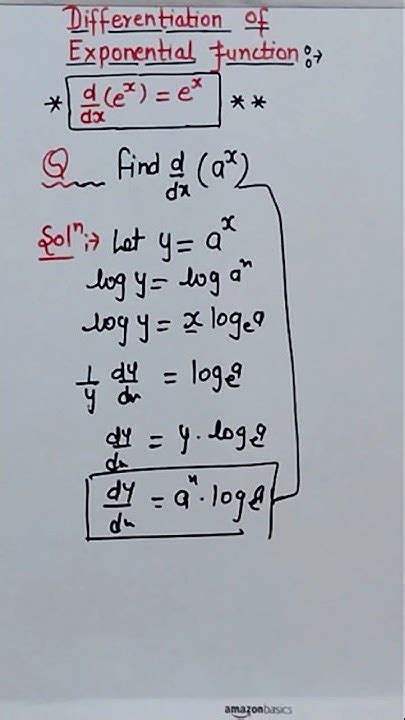 Differentiation of
Exponential function:→
* d/dx (eˣ) = eˣ **
Q Find d/dx (aˣ)
Solⁿ:→ Let y = aˣ
log y = log aˣ
log y = x logₑa
1/y dy/dx = logₑa
dy/dx = y · logₑa
dy/dx = aˣ · logₑa
amazonbasics